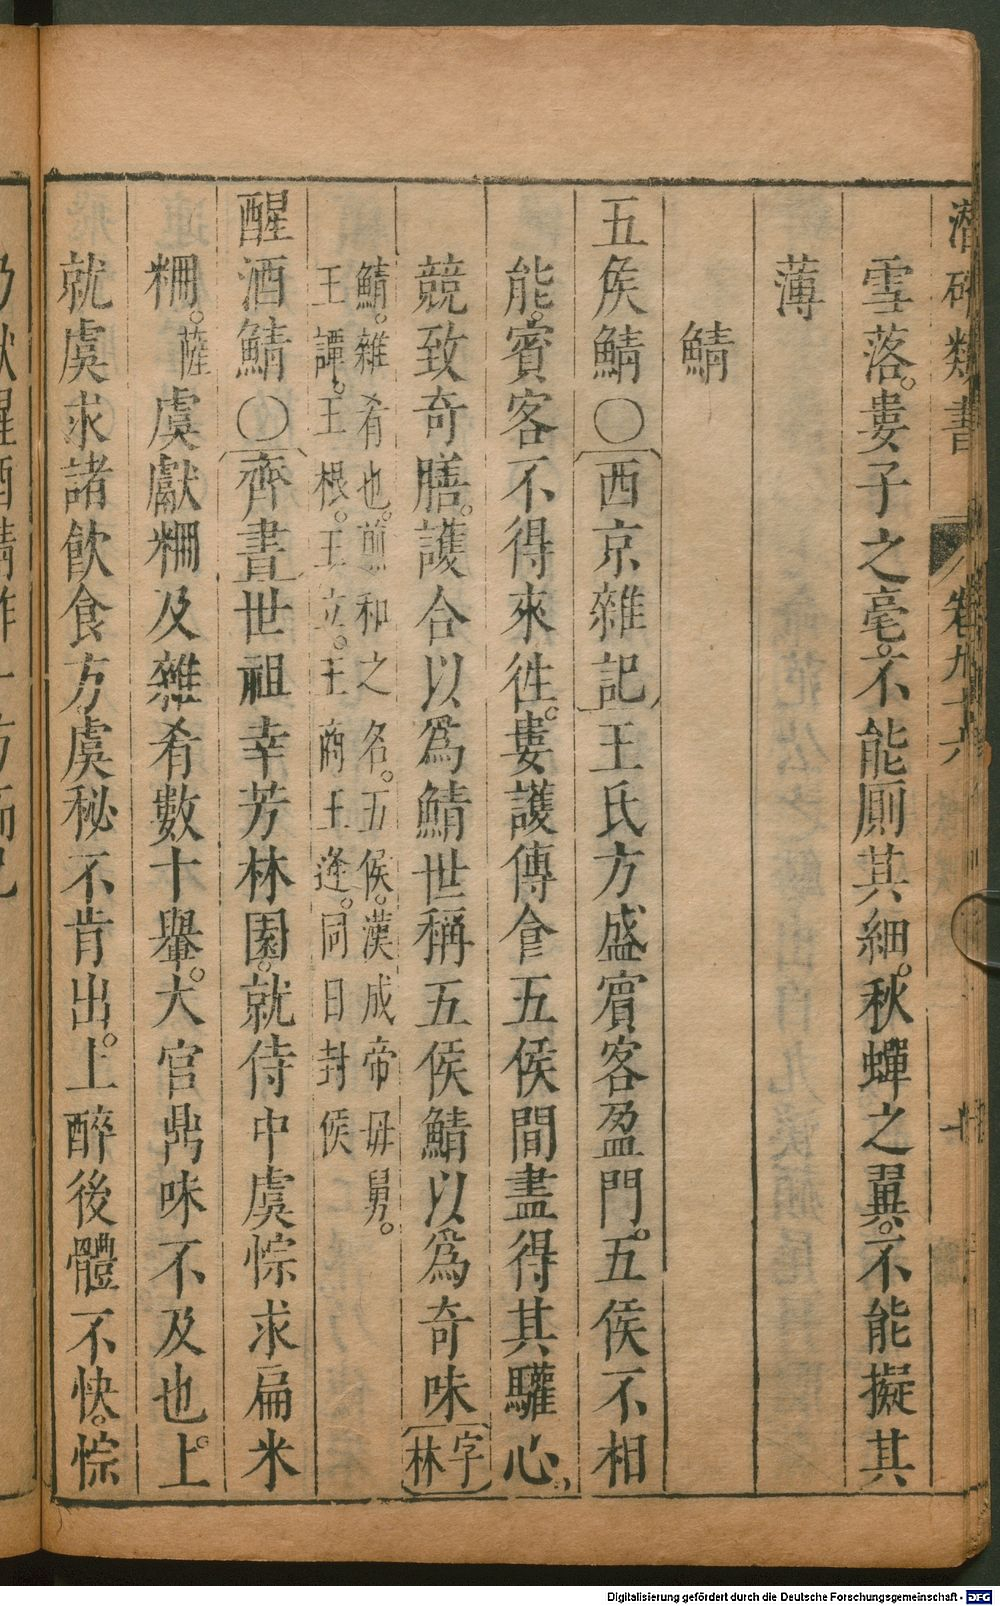 潛確類書 卷九十六 十
雪落。婁子之毫。不能厠其細。秋蟬之翼。不能擬其
薄
鯖
五侯鯖〇西京雜記王氏方盛賓客盈門。五侯不相
能。賓客不得來徃。婁護傳食五侯間盡得其驩心、
競致奇膳。護合以爲鯖世稱五侯鯖以爲奇味字林
鯖。雜肴也。煎和之名。五侯。漢成帝毋舅。
王譚。王根。王立。王商王逢。同日封侯
醒酒鯖〇齊書世祖幸芳林園。就侍中虞悰求扁米
粣。薩虞獻粣及雜肴數十轝。大官鼎味不及也。上
就虞求諸飲食方虞秘不肯出。上醉後體不快。悰
Digitalisierung gefördert durch die Deutsche Forschungsgemeinschaft - DFG